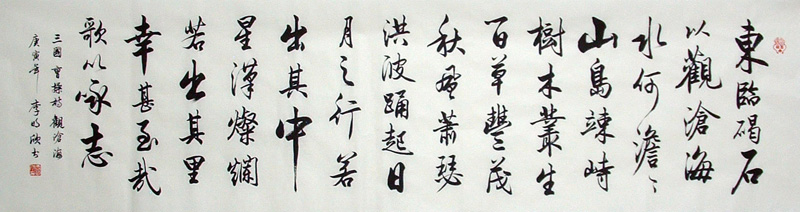 東臨碣石
以觀滄海
水何澹〻
山島竦峙
樹木叢生
百草豐茂
秋風蕭瑟
洪波踊起日
月之行若
出其中
星漢燦爛
若出其里
幸甚至哉
歌以咏志
三國曹操詩觀滄海
庚寅年 李 书